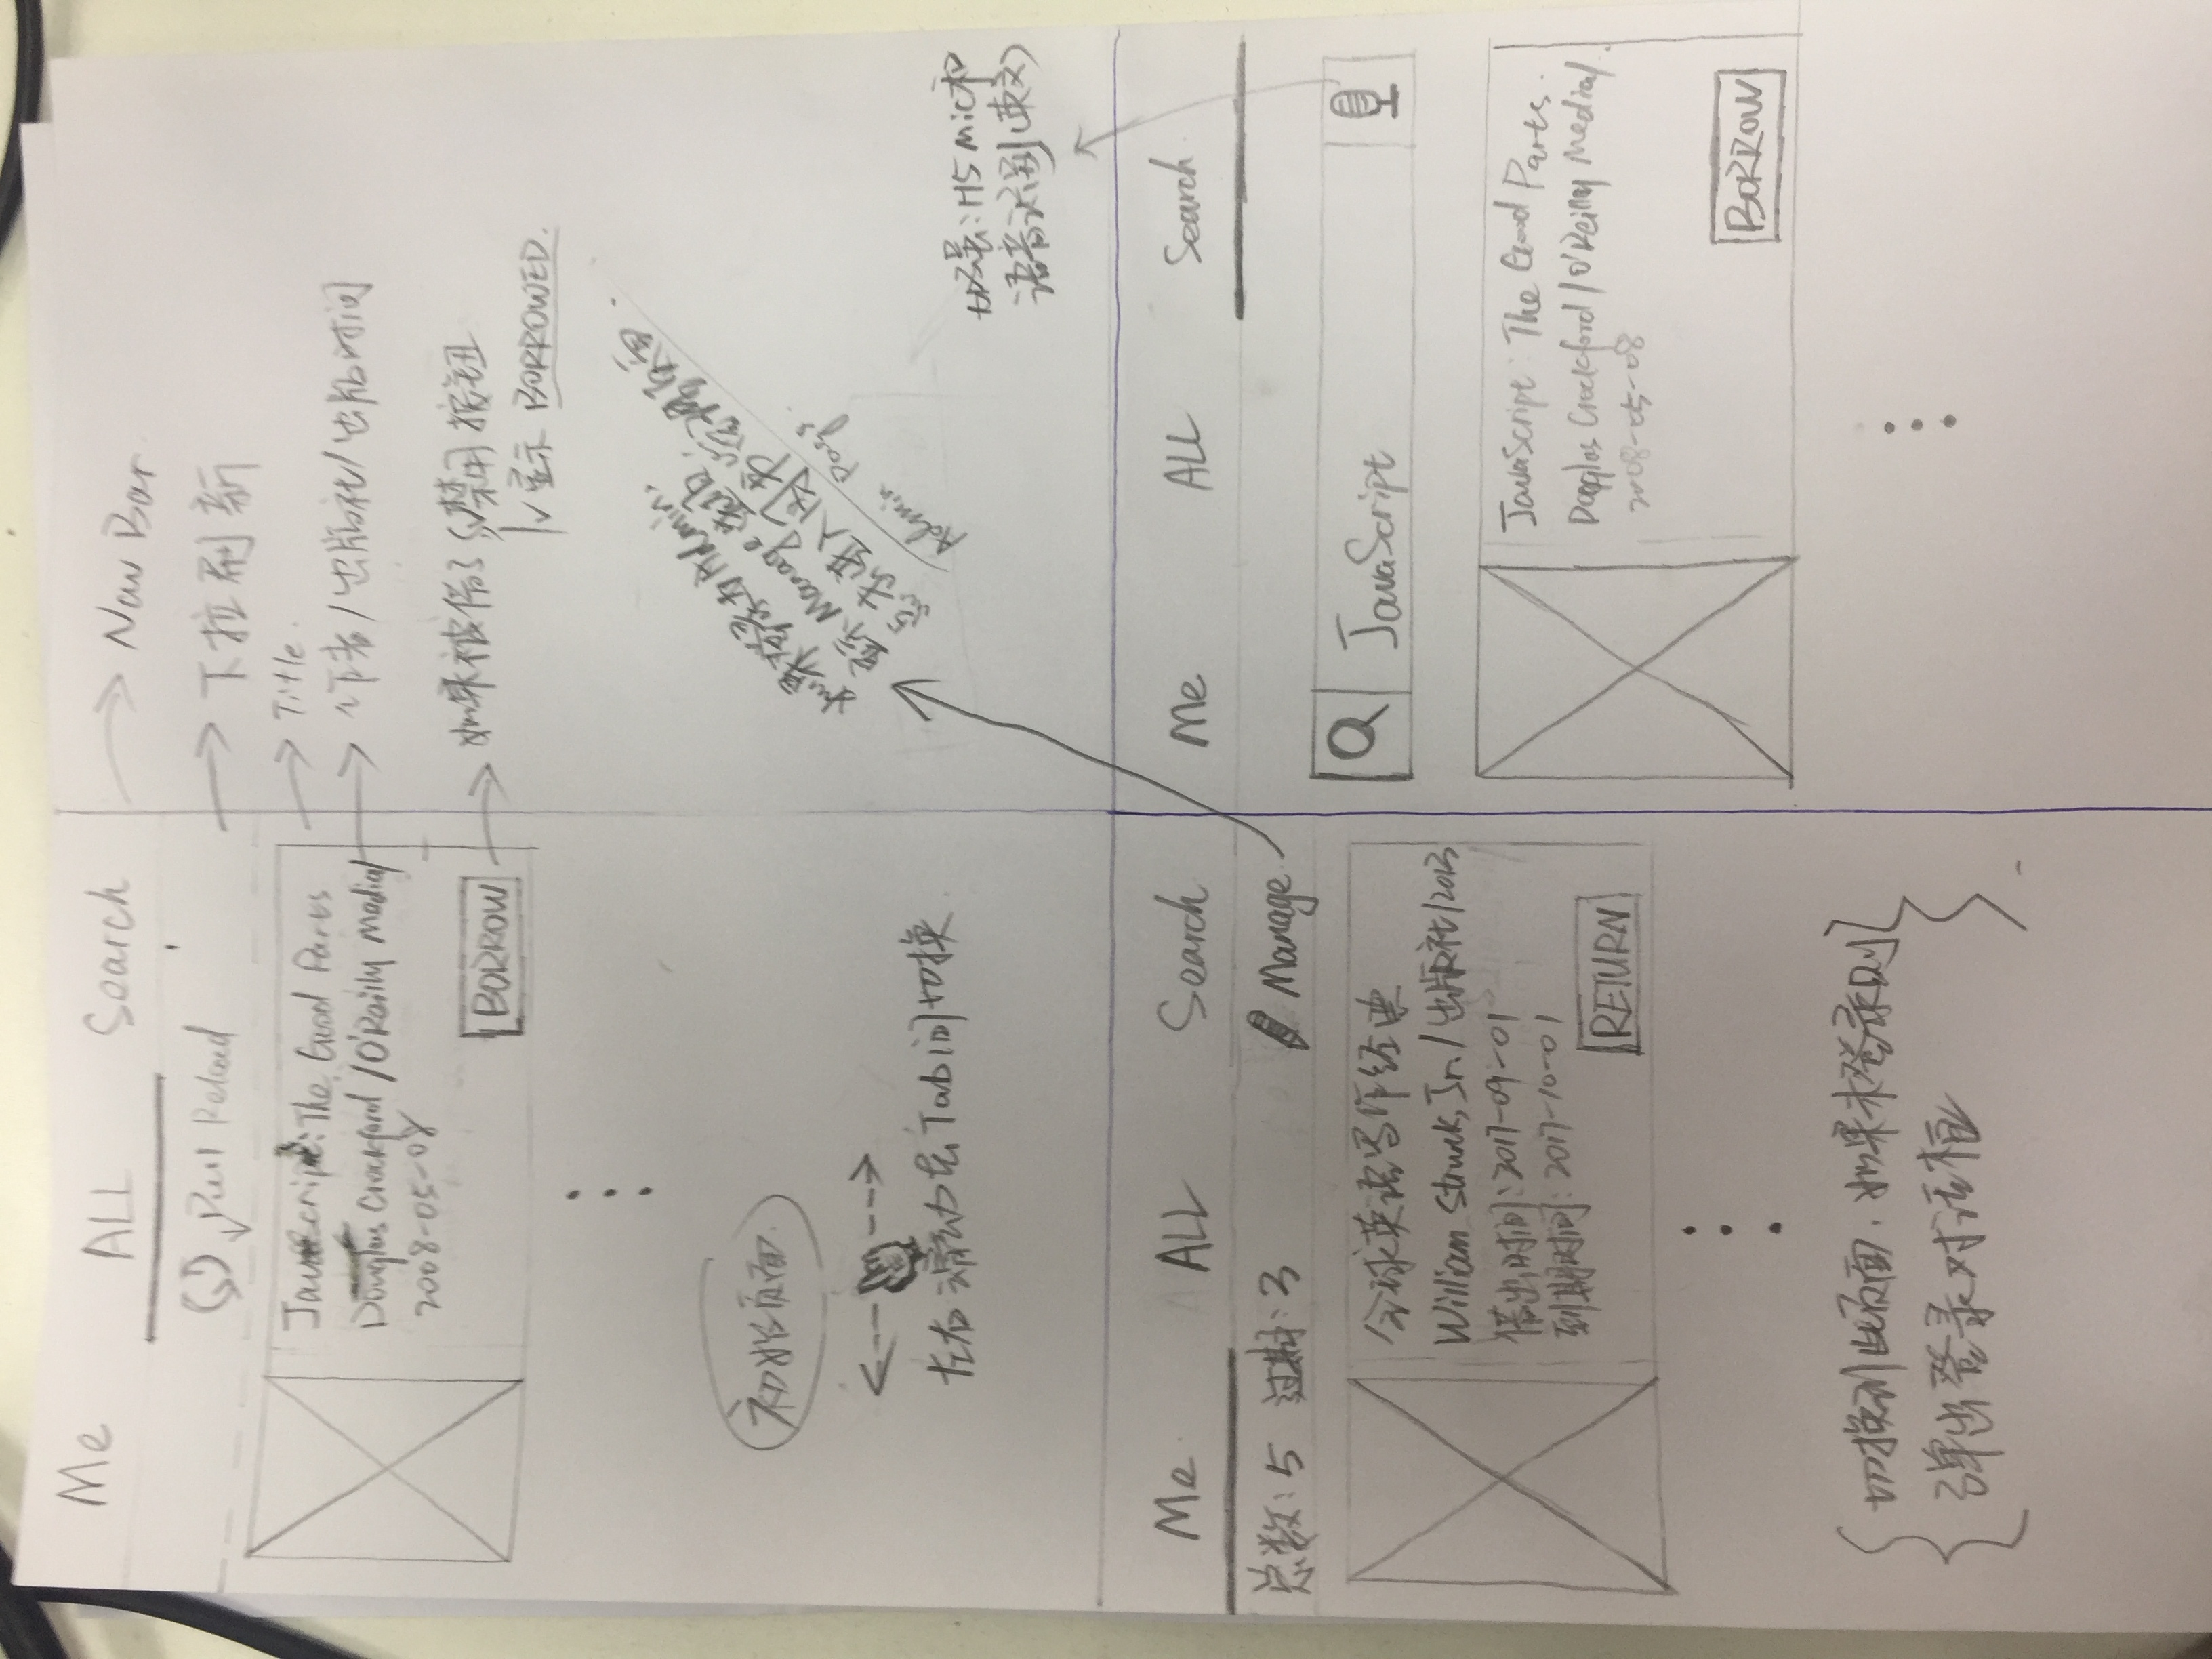 Me ALL Search
Pull Reload
JavaScript: The Good Parts
Douglas Crockford / O'Reilly Media/
2008-05-08
BORROW
初始页面
左右滑动在Tab间切换
Nav Bar
下拉刷新
Title
作者/出版社/出版时间
如果被借了 禁用按钮
显示 BORROWED.
如果登录为Admin,
显示Manage选项,
点击进入图书管理页面.
Admin Page.
加强:H5 Mic和
语音识别(英文)
Me ALL Search
总数:5 过期:3 Manage
全球英语写作经典
William Strunk, Jr. / 出版社/2013
借出时间:2017-09-01
到期时间:2017-10-01
RETURN
切换到此页面,如果未登录则
弹出登录对话框
Me ALL Search
JavaScript
JavaScript: The Good Parts.
Douglas Crockford / O'Reilly Media/
2008-05-08
BORROW